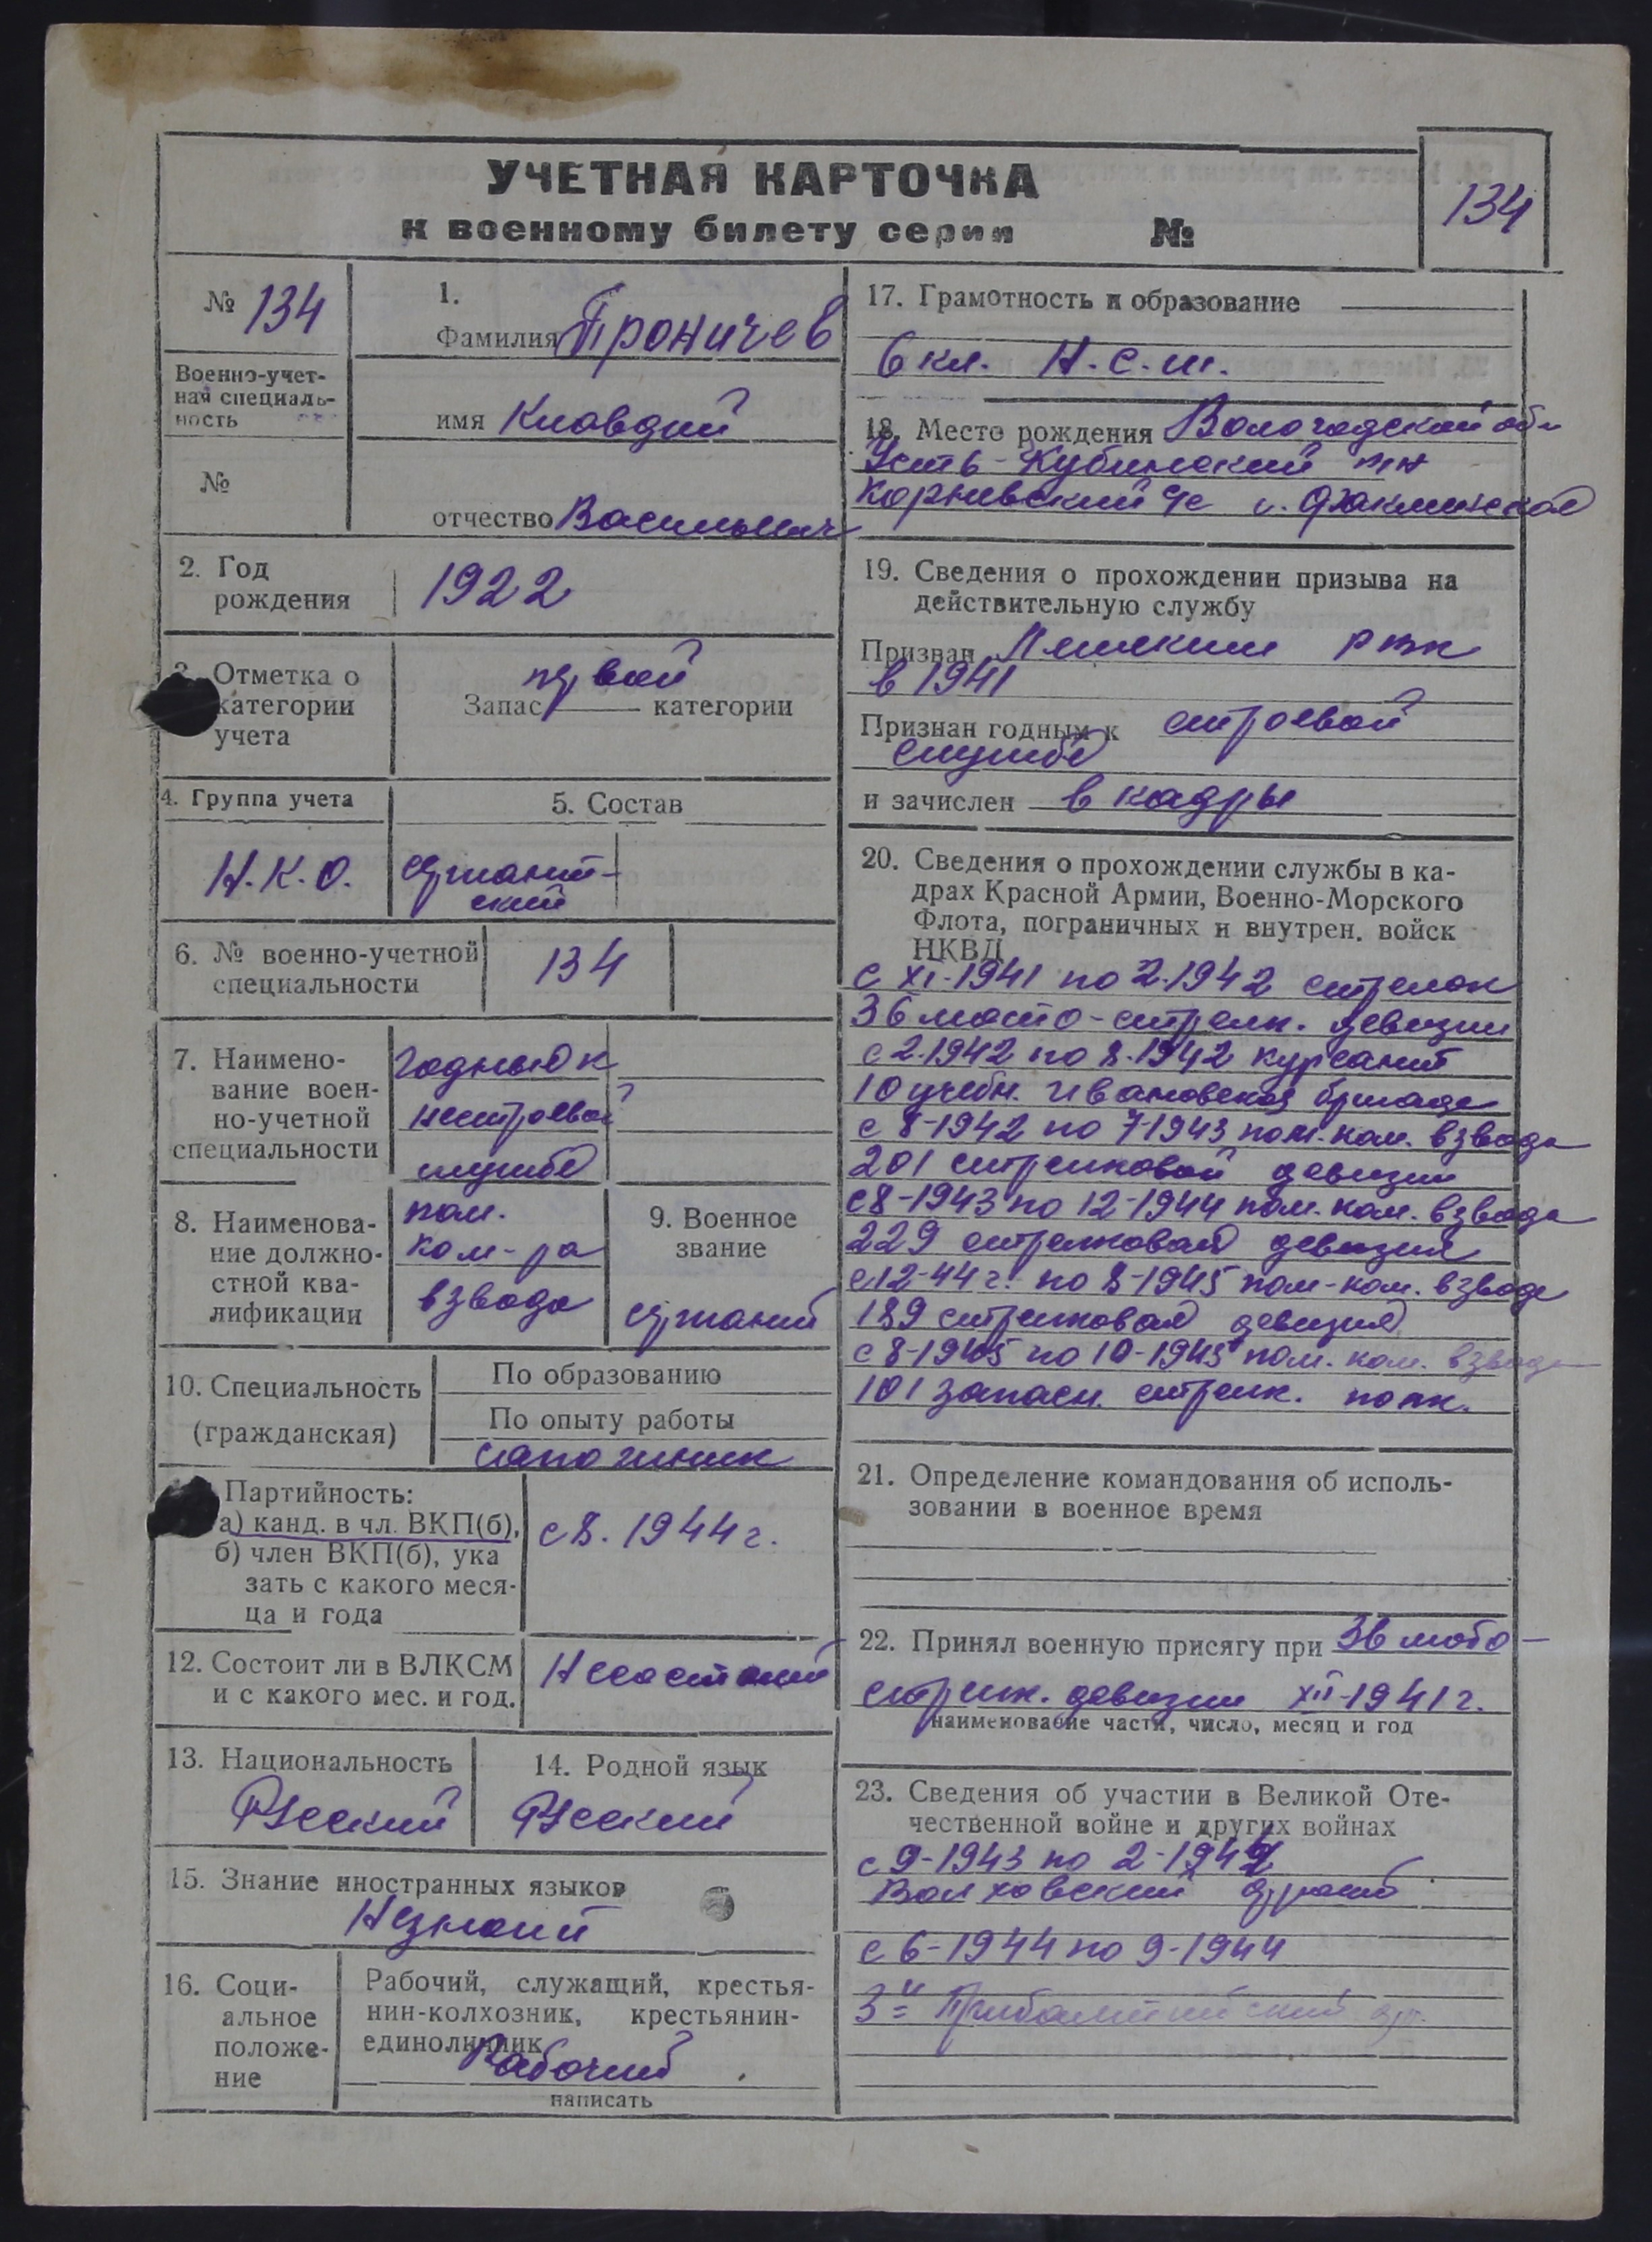 УЧЕТНАЯ КАРТОЧКА
к военному билету серии №
134
№ 134
Военно-учет-
ная специаль-
ность
№
1.
Фамилия Проничев
имя Клавдий
отчество Васильевич
2. Год
рождения
1922
3. Отметка о
категории
учета
первой
Запас категории
4. Группа учета
Н.К.О.
5. Состав
сержант-
ский
6. № военно-учетной
специальности
134
7. Наимено-
вание воен-
но-учетной
специальности
годный к
нестроевой
службе
8. Наименова-
ние должно-
стной ква-
лификации
пом.
ком-ра
взвода
9. Военное
звание
сержант
10. Специальность
(гражданская)
По образованию
По опыту работы
сапожник
Партийность:
а) канд. в чл. ВКП(б),
б) член ВКП(б), ука
зать с какого меся-
ца и года
с 8. 1944 г.
12. Состоит ли в ВЛКСМ
и с какого мес. и год.
Несостоит
13. Национальность
Русский
14. Родной язык
Русский
15. Знание иностранных языков
Незнает
16. Соци-
альное
положе-
ние
Рабочий, служащий, крестья-
нин-колхозник, крестьянин-
единоличник
Рабочий
написать
17. Грамотность и образование
6 кл. Н.С.Ш.
18. Место рождения Вологодской обл
Усть-Кубинский р-н
Корневский с/с
19. Сведения о прохождении призыва на
действительную службу
Призван рвк
в 1941
Признан годным к строевой
службе
и зачислен в кадры
20. Сведения о прохождении службы в ка-
драх Красной Армии, Военно-Морского
Флота, пограничных и внутрен. войск
НКВД
с XI-1941 по 2.1942 стрелок
36 мото-стрелк. девизии
с 2.1942 по 8.1942 курсант
10 учебн. Ивановская бригада
с 8-1942 по 7-1943 пом. ком. взвода
201 стрелковой девизии
с 8-1943 по 12-1944 пом. ком. взвода
229 стрелковая девизия
с 12-44 г. по 8-1945 пом-ком. взвода
189 стрелковая девизия
с 8-1945 по 10-1945 пом. ком. взвода
101 запасн. стрелк. полк.
21. Определение командования об исполь-
зовании в военное время
22. Принял военную присягу при 36 мото-
стрелк. девизии XII-1941 г.
наименование части, число, месяц и год
23. Сведения об участии в Великой Оте-
чественной войне и других войнах
с 9-1943 по 2-1944
Волховский фронт
с 6-1944 по 9-1944
3й Прибалтийский фр.